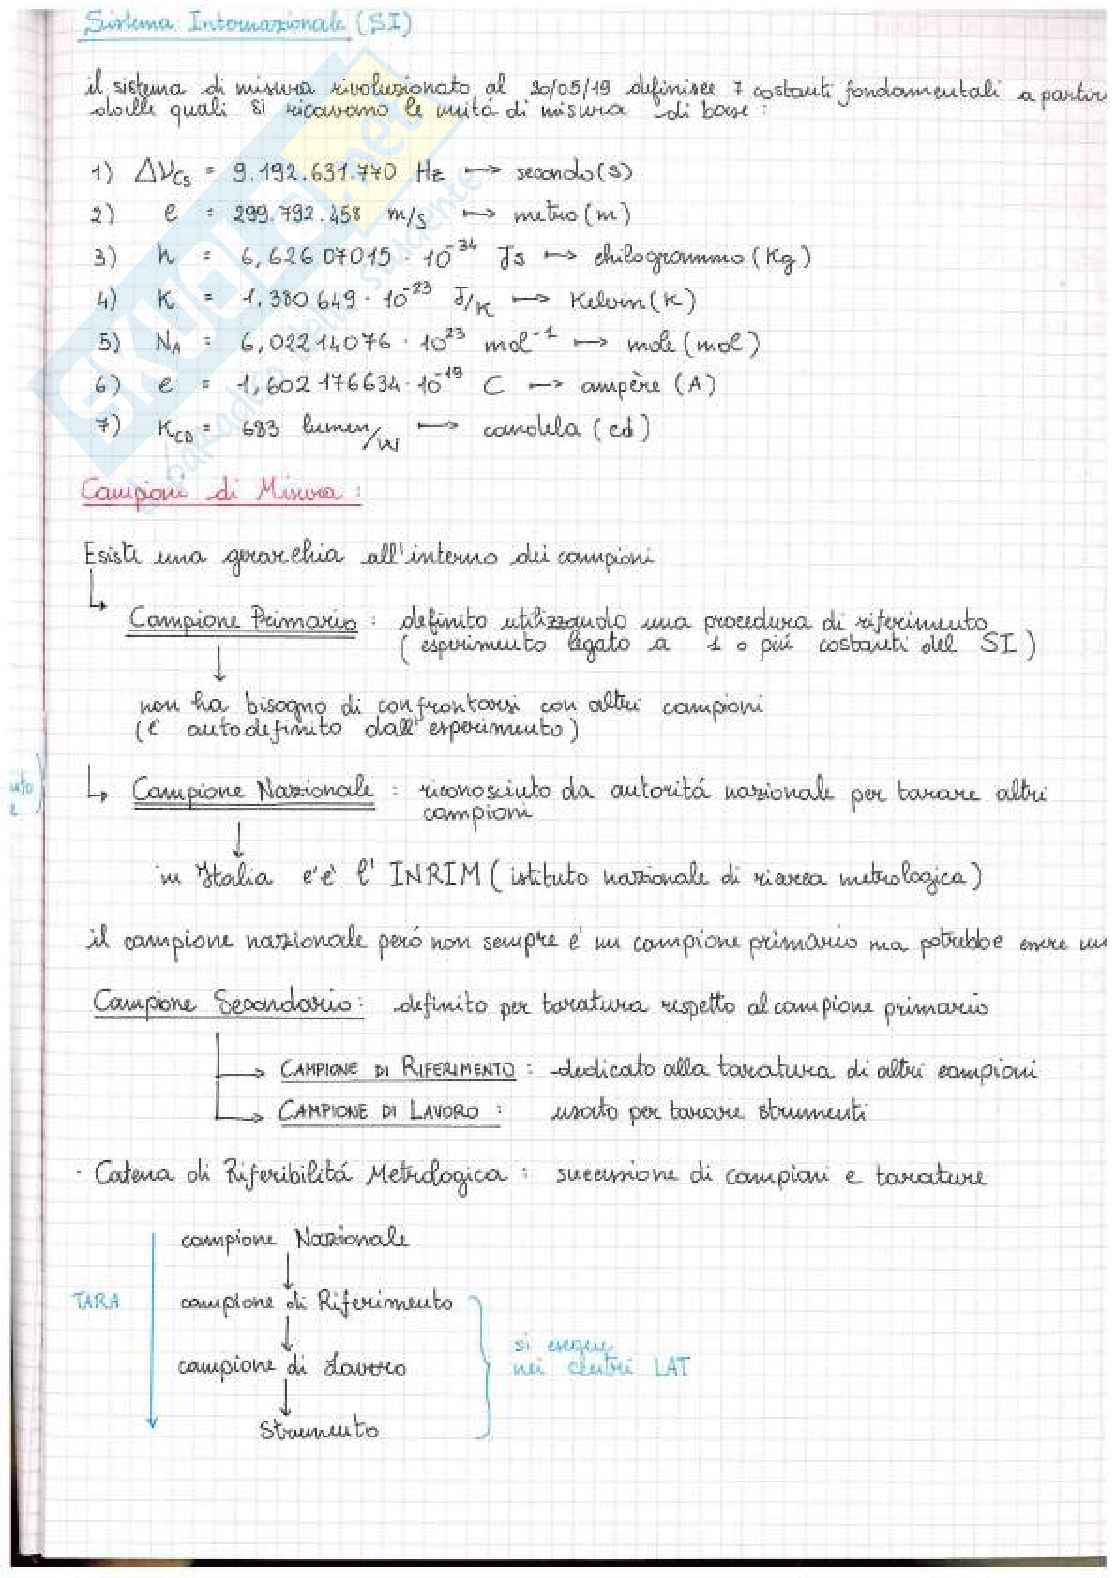 Sistema Internazionale (SI)
il sistema di misura rivoluzionato al 20/05/19 definisce 7 costanti fondamentali a partire
dalle quali si ricavano le unitá di misura di base:
1) ΔνCs = 9.192.631.770 Hz ↦ secondo (s)
2) c = 299.792.458 m/s ↦ metro (m)
3) h = 6,62607015 · 10⁻³⁴ Js ↦ chilogrammo (Kg)
4) K = 1,380649 · 10⁻²³ J/K ↦ Kelvin (K)
5) NA = 6,02214076 · 10²³ mol⁻¹ ↦ mole (mol)
6) e = 1,602176634 · 10⁻¹⁹ C → ampère (A)
7) KCD = 683 lumen/W ↦ candela (cd)
Campioni di Misura:
Esiste una gerarchia all'interno dei campioni
Campione Primario: definito utilizzando una procedura di riferimento
(esperimento legato a 1 o piú costanti del SI)
non ha bisogno di confrontarsi con altri campioni
(é autodefinito dall'esperimento)
Campione Nazionale: riconosciuto da autoritá nazionale per tarare altri
campioni
in Italia c'é l'INRIM (istituto nazionale di ricerca metrologica)
il campione nazionale peró non sempre é un campione primario ma potrebbe essere un
Campione Secondario: definito per taratura rispetto al campione primario
→ CAMPIONE DI RIFERIMENTO: dedicato alla taratura di altri campioni
→ CAMPIONE DI LAVORO: usato per tarare strumenti
· Catena di Riferibilitá Metrologica: successione di campioni e tarature
campione Nazionale
TARA campione di Riferimento
campione di Lavoro
Strumento
si esegue
nei centri LAT
SKUOLA.net